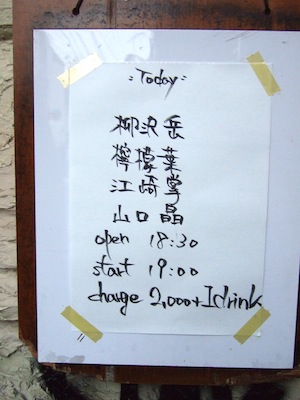 : Today :
柳沢岳
檸檬葉
江崎掌
山口晶
open 18:30
start 19:00
charge 2,000+1drink